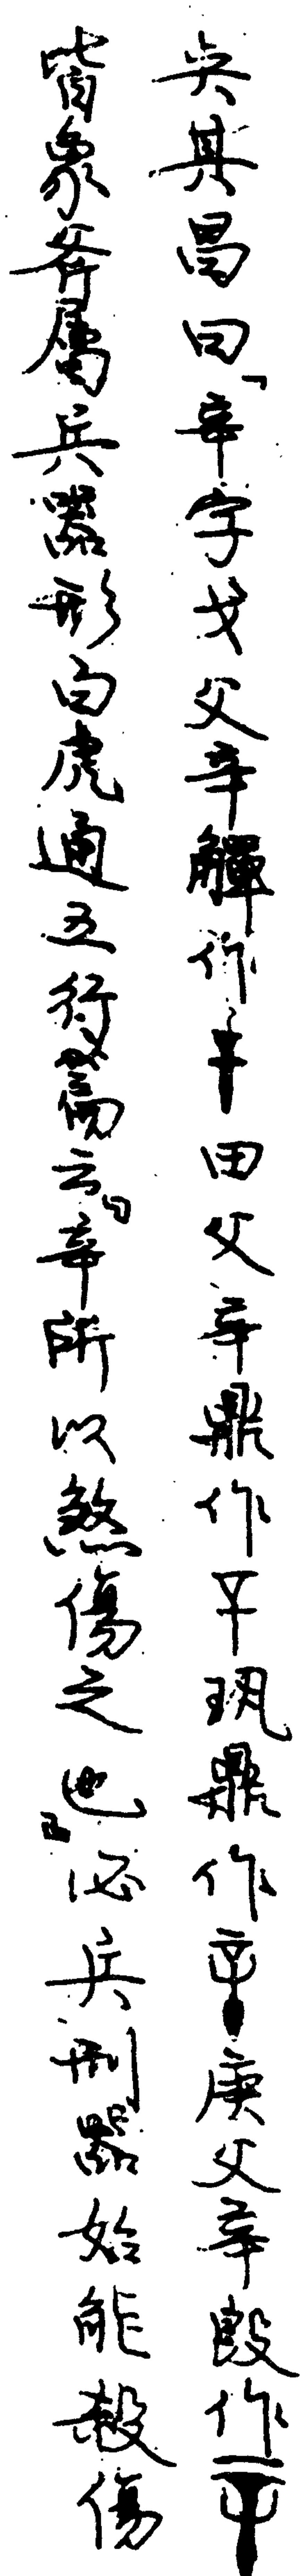 吴其昌曰「辛字戈父辛觶作田父辛鼎作䍃鼎作庚父辛殷作
皆象斧属兵器形白虎通五行篇云『辛所以煞傷之也』必兵刑器始能殺傷